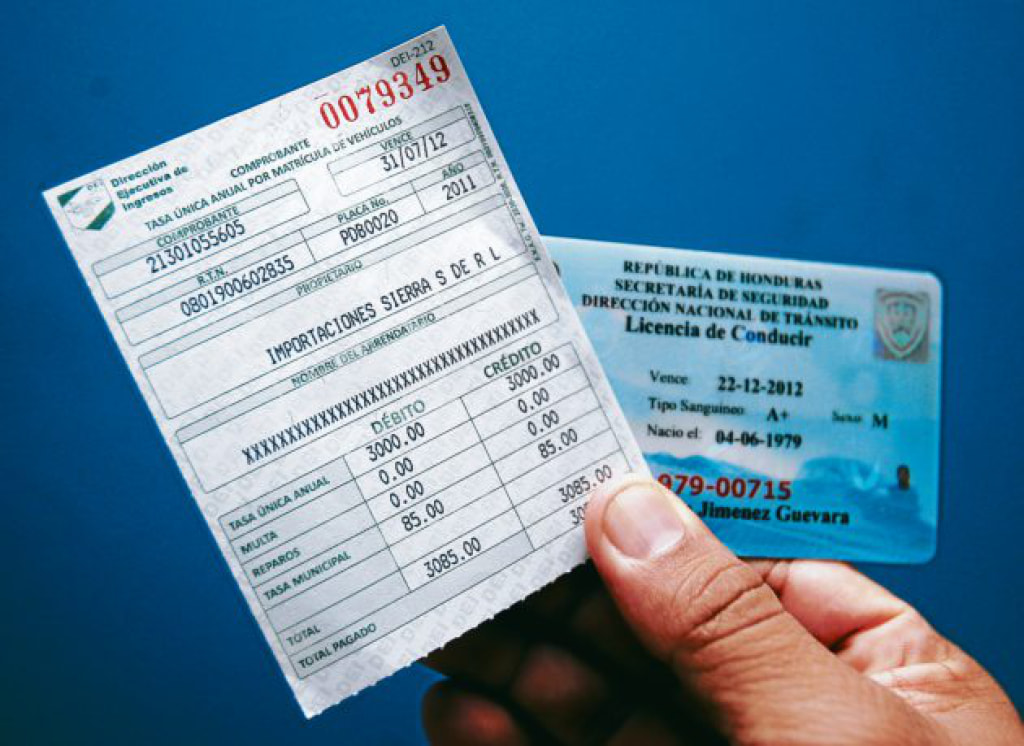 DEI-212
0079349
Dirección
Ejecutiva de
Ingresos
COMPROBANTE
TASA ÚNICA ANUAL POR MATRÍCULA DE VEHÍCULOS
VENCE
31/07/12
COMPROBANTE
21301055605
PLACA No.
PDB0020
AÑO
2011
R.T.N.
0801900602835
PROPIETARIO
IMPORTACIONES SIERRA S DE R L
NOMBRE DEL ARRENDATARIO
DÉBITO CRÉDITO
TASA ÚNICA ANUAL 3000.00 3000.00
MULTA 0.00 0.00
REPAROS 0.00 0.00
TASA MUNICIPAL 85.00 85.00
TOTAL 3085.00 3085.00
TOTAL PAGADO
REPÚBLICA DE HONDURAS
SECRETARÍA DE SEGURIDAD
DIRECCIÓN NACIONAL DE TRÁNSITO
Licencia de Conducir
Vence: 22-12-2012
Tipo Sanguineo: A+ Sexo: M
Nacio el: 04-06-1979
979-00715
Jimenez Guevara